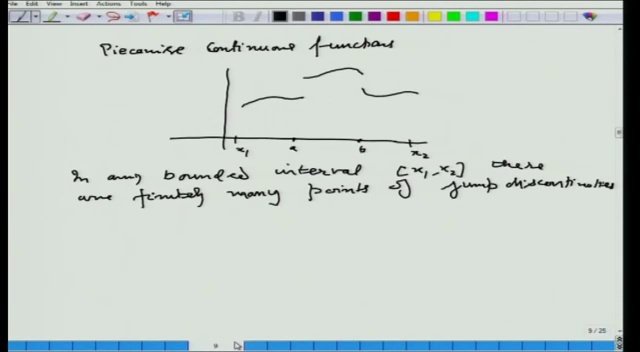 File Edit View Insert Actions Tools Help
Piecewise Continuous functions
x₁ a b x₂
In any bounded interval [x₁, x₂] there
are finitely many points of jump discontinuities
9 / 25
9